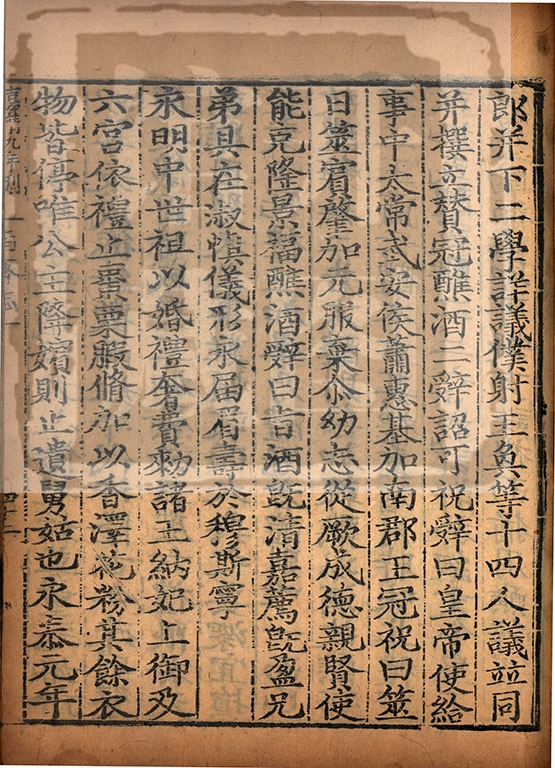 郎并下二學詳議僕射王奐等十四人議並同
并撰立贊冠醮酒二辭詔可祝辭曰皇帝使給
事中太常武安侯蕭惠基加南郡王冠祝曰筮
日筮賔肇加元服棄尒幼志從厥成德親賢使
能克隆景福醮酒辭曰旨酒旣清嘉薦旣盈兄
弟具在淑慎儀形永届眉壽於穆斯寧
永明中世祖以婚禮奢費勑諸王納妃上御及
六宮依禮止棗栗腶脩加以香澤花粉其餘衣
物皆停唯公主降嬪則止遺舅姑也永泰元年